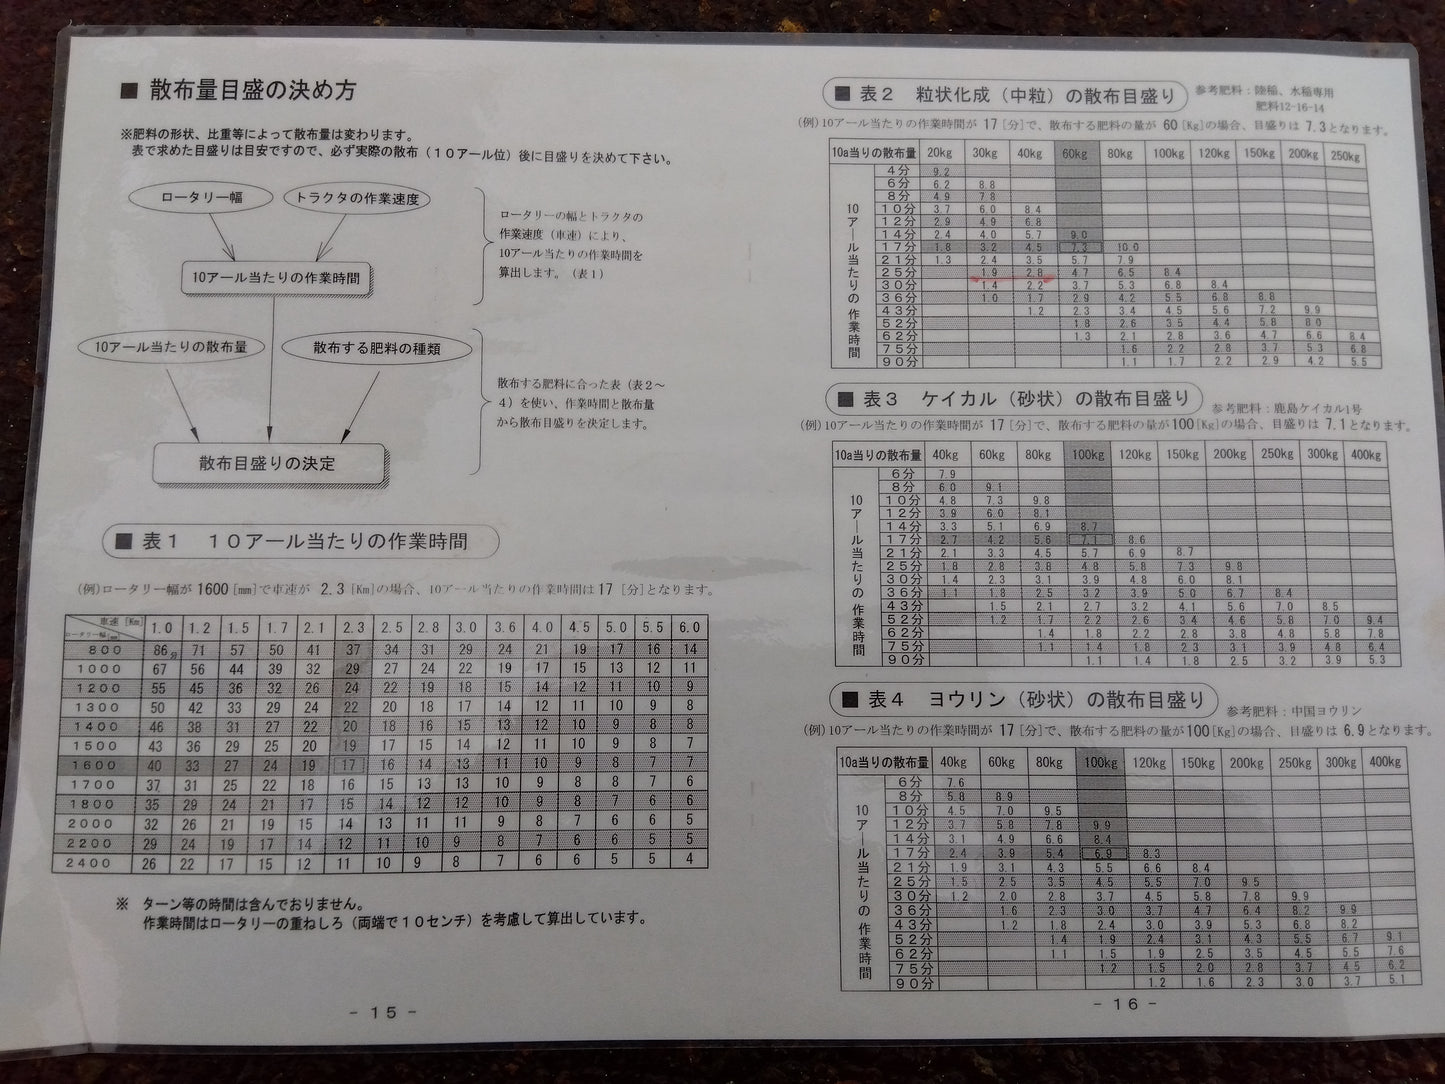 ■ 散布量目盛の決め方
※肥料の形状、比重等によって散布量は変わります。
表で求めた目盛りは目安ですので、必ず実際の散布（１０アール位）後に目盛りを決めて下さい。
ロータリー幅
トラクタの作業速度
10アール当たりの作業時間
ロータリーの幅とトラクタの
作業速度（車速）により、
10アール当たりの作業時間を
算出します。（表１）
10アール当たりの散布量
散布する肥料の種類
散布目盛りの決定
散布する肥料に合った表（表２～
４）を使い、作業時間と散布量
から散布目盛りを決定します。
■ 表１ １０アール当たりの作業時間
(例)ロータリー幅が 1600 [㎜]で車速が 2.3 [Km]の場合、10アール当たりの作業時間は 17 [分]となります。
車速 [Km] 1.0 1.2 1.5 1.7 2.1 2.3 2.5 2.8 3.0 3.6 4.0 4.5 5.0 5.5 6.0
ロータリー幅[㎜]
800 86分 71 57 50 41 37 34 31 29 24 21 19 17 16 14
1000 67 56 44 39 32 29 27 24 22 19 17 15 13 12 11
1200 55 45 36 32 26 24 22 19 18 15 14 12 11 10 9
1300 50 42 33 29 24 22 20 18 17 14 12 11 10 9 8
1400 46 38 31 27 22 20 18 16 15 13 12 10 9 8 8
1500 43 36 29 25 20 19 17 15 14 12 11 10 9 8 7
1600 40 33 27 24 19 17 16 14 13 11 10 9 8 7 7
1700 37 31 25 22 18 16 15 13 13 10 9 8 8 7 6
1800 35 29 24 21 17 15 14 12 12 10 9 8 7 6 6
2000 32 26 21 19 15 14 13 11 11 9 8 7 6 6 5
2200 29 24 19 17 14 12 11 10 9 8 7 6 6 5 5
2400 26 22 17 15 12 11 10 9 8 7 6 6 5 5 4
※ ターン等の時間は含んでおりません。
作業時間はロータリーの重ねしろ（両端で１０センチ）を考慮して算出しています。
- 15 -
■ 表２ 粒状化成（中粒）の散布目盛り
参考肥料：陸稲、水稲専用
肥料12-16-14
(例)10アール当たりの作業時間が 17 [分]で、散布する肥料の量が 60 [Kg]の場合、目盛りは 7.3となります。
10a当りの散布量 20kg 30kg 40kg 60kg 80kg 100kg 120kg 150kg 200kg 250kg
10アール当たりの作業時間
4分 9.2
6分 6.2 8.8
8分 4.9 7.8
10分 3.7 6.0 8.4
12分 2.9 4.9 6.8
14分 2.4 4.0 5.7 9.0
17分 1.8 3.2 4.5 7.3 10.0
21分 1.3 2.4 3.5 5.7 7.9
25分 1.9 2.8 4.7 6.5 8.4
30分 1.4 2.2 3.7 5.3 6.8 8.4
36分 1.0 1.7 2.9 4.2 5.5 6.8 8.8
43分 1.2 2.3 3.4 4.5 5.6 7.2 9.9
52分 1.8 2.6 3.5 4.4 5.8 8.0
62分 1.3 2.1 2.8 3.6 4.7 6.6 8.4
75分 1.6 2.2 2.8 3.7 5.3 6.8
90分 1.1 1.7 2.2 2.9 4.2 5.5
■ 表３ ケイカル（砂状）の散布目盛り
参考肥料：鹿島ケイカル1号
(例)10アール当たりの作業時間が 17 [分]で、散布する肥料の量が100[Kg]の場合、目盛りは 7.1となります。
10a当りの散布量 40kg 60kg 80kg 100kg 120kg 150kg 200kg 250kg 300kg 400kg
10アール当たりの作業時間
6分 7.9
8分 6.0 9.1
10分 4.8 7.3 9.8
12分 3.9 6.0 8.1
14分 3.3 5.1 6.9 8.7
17分 2.7 4.2 5.6 7.1 8.6
21分 2.1 3.3 4.5 5.7 6.9 8.7
25分 1.8 2.8 3.8 4.8 5.8 7.3 9.8
30分 1.4 2.3 3.1 3.9 4.8 6.0 8.1
36分 1.1 1.8 2.5 3.2 3.9 5.0 6.7 8.4
43分 1.5 2.1 2.7 3.2 4.1 5.6 7.0 8.5
52分 1.2 1.7 2.2 2.6 3.4 4.6 5.8 7.0 9.4
62分 1.4 1.8 2.2 2.8 3.8 4.8 5.8 7.8
75分 1.1 1.4 1.8 2.3 3.1 3.9 4.8 6.4
90分 1.1 1.4 1.8 2.5 3.2 3.9 5.3
■ 表４ ヨウリン（砂状）の散布目盛り
参考肥料：中国ヨウリン
(例)10アール当たりの作業時間が 17 [分]で、散布する肥料の量が100[Kg]の場合、目盛りは 6.9となります。
10a当りの散布量 40kg 60kg 80kg 100kg 120kg 150kg 200kg 250kg 300kg 400kg
10アール当たりの作業時間
6分 7.6
8分 5.8 8.9
10分 4.5 7.0 9.5
12分 3.7 5.8 7.8 9.9
14分 3.1 4.9 6.6 8.4
17分 2.4 3.9 5.4 6.9 8.3
21分 1.9 3.1 4.3 5.5 6.6 8.4
25分 1.5 2.5 3.5 4.5 5.5 7.0 9.5
30分 1.2 2.0 2.8 3.7 4.5 5.8 7.8 9.9
36分 1.6 2.3 3.0 3.7 4.7 6.4 8.2 9.9
43分 1.2 1.8 2.4 3.0 3.9 5.3 6.8 8.2
52分 1.4 1.9 2.4 3.1 4.3 5.5 6.7 9.1
62分 1.1 1.5 1.9 2.5 3.5 4.5 5.5 7.6
75分 1.2 1.5 2.0 2.8 3.7 4.5 6.2
90分 1.2 1.6 2.3 3.0 3.7 5.1
- 16 -